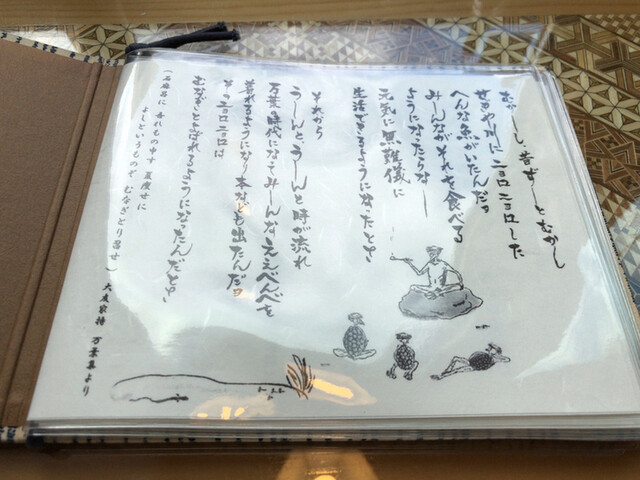 むかーし、昔ずーとむかし
せかや川にニョロニョロした
へんな魚がいたんだョ
みーんながそれを食べる
ようになったらなー
元気に無難儀に
生活できるようになったとさ
それから
うーんとうーんと時が流れ
万葉時代になてみーんなええべんべを
着れるようになり本なども出たんだョ
そのニョロニョロは
むなぎとよばれるようになったんだとさ
(石麻呂に 吾れもの申す 夏痩せに
よしというものぞ むなぎとり召せ)大友家持 万葉集より